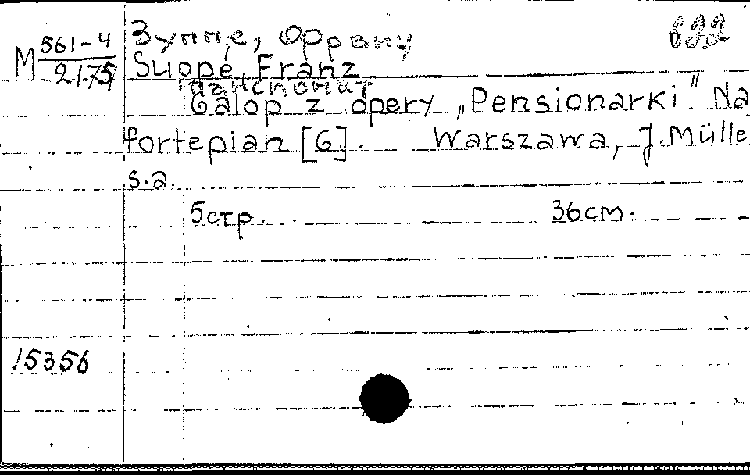 M 561-4
2175
Зуппе, Франц
Suppé, Franz
Galop z opery „Pensionarki". Na
fortepian [G]. Warszawa, J. Mülle
s.a.
5стр. 36см.
15356